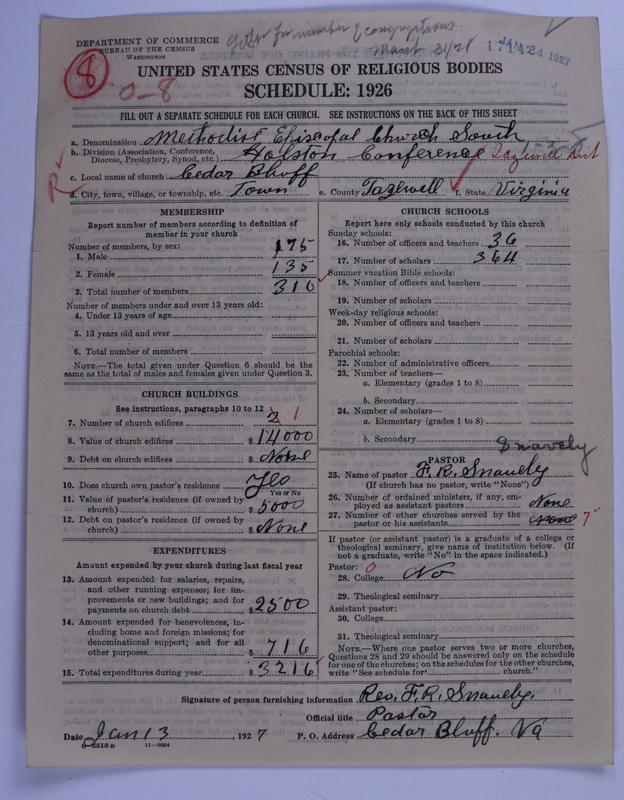 DEPARTMENT OF COMMERCE
BUREAU OF THE CENSUS
WASHINGTON
for number of congregations.
17 JAN 24 1927
8
0-8
UNITED STATES CENSUS OF RELIGIOUS BODIES
SCHEDULE: 1926
FILL OUT A SEPARATE SCHEDULE FOR EACH CHURCH. SEE INSTRUCTIONS ON THE BACK OF THIS SHEET
a. Denomination Methodist Episcopal Church South
b. Division (Association, Conference, Diocese, Presbytery, Synod, etc.) Holston Conference Tazewell Dist
c. Local name of church Cedar Bluff
R
d. City, town, village, or township, etc. Town e. County Tazewell f. State Virginia
MEMBERSHIP
Report number of members according to definition of
member in your church
Number of members, by sex:
1. Male 175
2. Female 135
3. Total number of members 310
Number of members under and over 13 years old:
4. Under 13 years of age
5. 13 years old and over
6. Total number of members
NOTE.—The total given under Question 6 should be
the same as the total of males and females given under Question 3.
CHURCH BUILDINGS
See instructions, paragraphs 10 to 12
7. Number of church edifices 2 1
8. Value of church edifices $ 14000
9. Debt on church edifices $ None
10. Does church own pastor's residence? Yes
Yes or No
11. Value of pastor's residence (if owned by
church) $ 5000
12. Debt on pastor's residence (if owned by
church) $ None
EXPENDITURES
Amount expended by your church during last fiscal year
13. Amount expended for salaries, repairs,
and other running expenses; for im-
provements or new buildings; and for
payments on church debt $ 2500
14. Amount expended for benevolences, in-
cluding home and foreign missions; for
denominational support; and for all
other purposes $ 716
15. Total expenditures during year $ 3216
CHURCH SCHOOLS
Report here only schools conducted by this church
Sunday schools:
16. Number of officers and teachers 36
17. Number of scholars 364
Summer vacation Bible schools:
18. Number of officers and teachers
19. Number of scholars
Week-day religious schools:
20. Number of officers and teachers
21. Number of scholars
Parochial schools:
22. Number of administrative officers
23. Number of teachers—
a. Elementary (grades 1 to 8)
b. Secondary
24. Number of scholars—
a. Elementary (grades 1 to 8)
b. Secondary
Snavely
PASTOR
25. Name of pastor F. R. Snavely
(If church has no pastor, write "None")
26. Number of ordained ministers, if any, em-
ployed as assistant pastors None
27. Number of other churches served by the
pastor or his assistants None 7
If pastor (or assistant pastor) is a graduate of a college or
theological seminary, give name of institution below. (If
not a graduate, write "No" in the space indicated.)
Pastor: 0
28. College No
29. Theological seminary
Assistant pastor:
30. College
31. Theological seminary
NOTE.—Where one pastor serves two or more churches,
Questions 28 and 29 should be answered only on the schedule
for one of the churches; on the schedules for the other churches,
write "See schedule for church."
Signature of person furnishing information Rev. F. R. Snavely.
Official title Pastor
Date Jan 13, 1927 P. O. Address Cedar Bluff. Va
8-5518a 11-9064